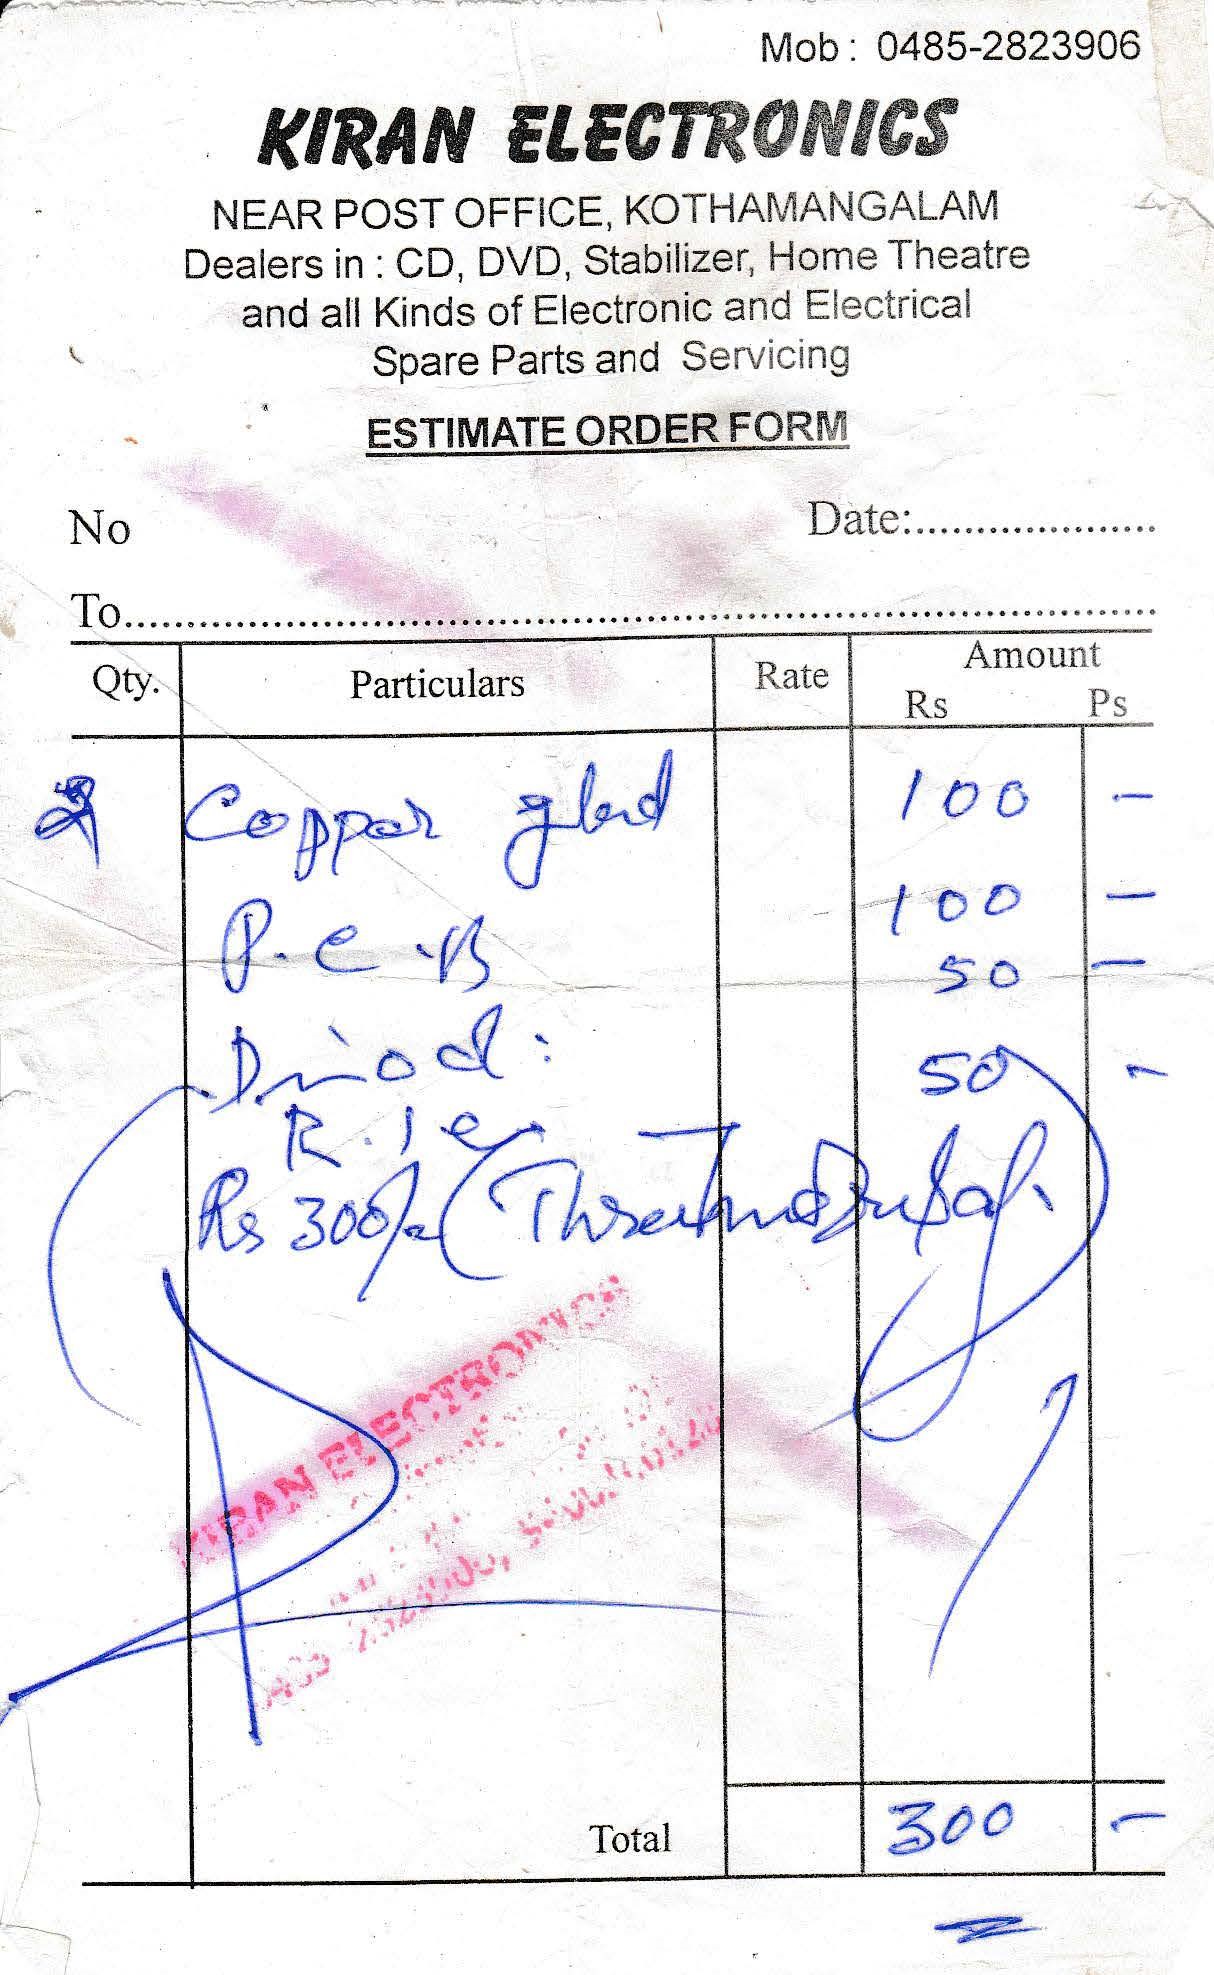 Mob : 0485-2823906
KIRAN ELECTRONICS
NEAR POST OFFICE, KOTHAMANGALAM
Dealers in : CD, DVD, Stabilizer, Home Theatre
and all Kinds of Electronic and Electrical
Spare Parts and Servicing
ESTIMATE ORDER FORM
No Date:....................
To....................
Qty. Particulars Rate Amount
Rs Ps
Copper 100 -
P.C.B 100 -
50 -
Diod:
50 -
Rs 300/- (
KIRAN ELECTRONICS
Total 300 -